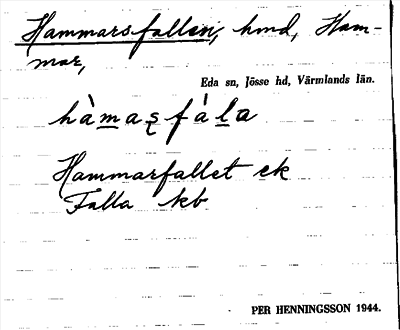 Hammarsfallen, hmd, Ham-
mar,
Eda sn, Jösse hd, Värmlands län.
hàmaʂfála
Hammarfallet ek
Falla kb
PER HENNINGSSON 1944.